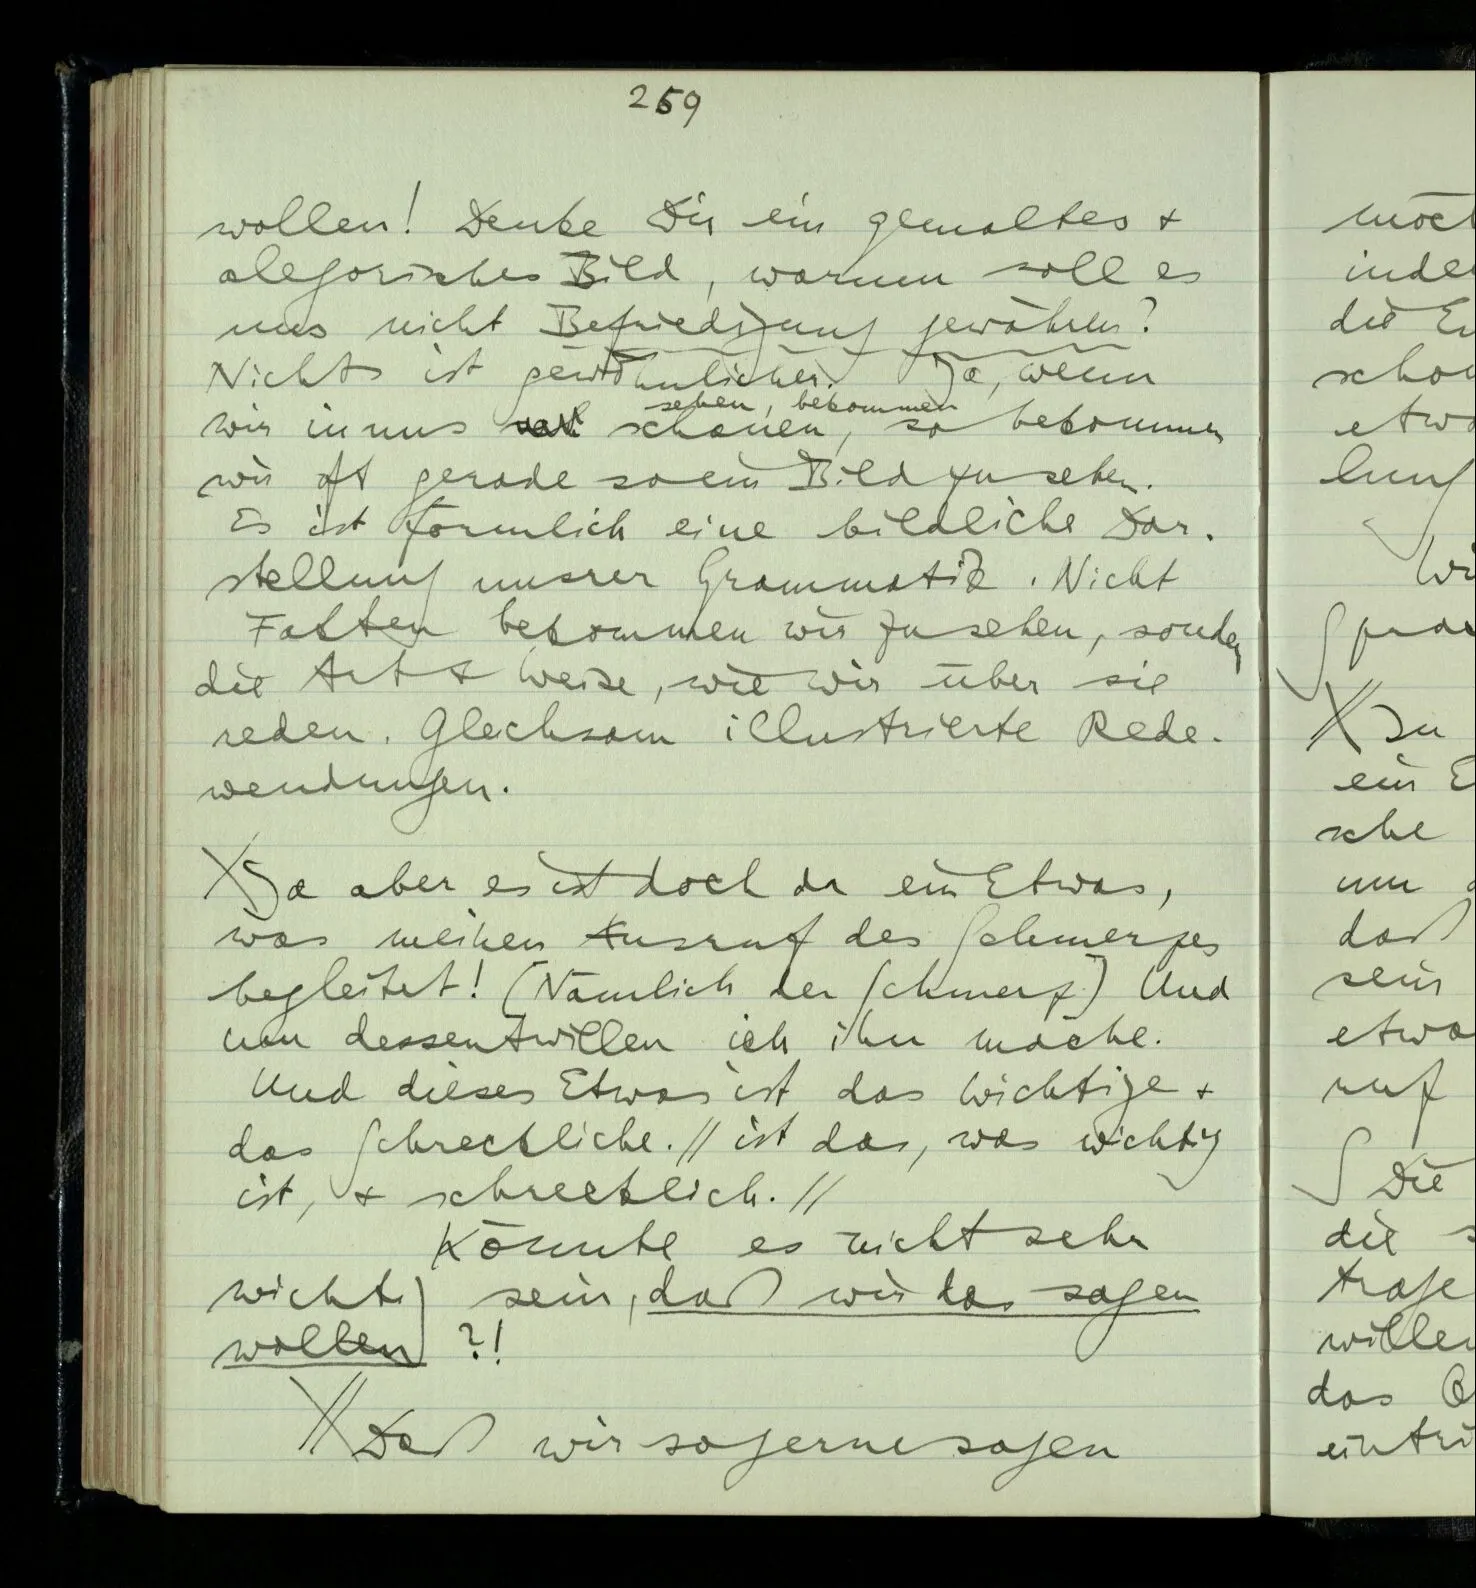 259
wollen! Denke Dir ein gemaltes +
alegorisches Bild, warum soll es
uns nicht Befriedigung gewähren?
Nichts ist gewöhnlicher. Ja, wenn
sehen, bekommen
wir in uns schauen, so bekommen
wir oft gerade so ein Bild zu sehen.
Es ist förmlich eine bildliche Dar-
stellung unsrer Grammatik. Nicht
Fakten bekommen wir zu sehen, sondern
die Art + Weise, wie wir über sie
reden. Gleichsam illustrierte Rede-
wendungen.
\ Ja aber es ist doch da ein Etwas,
was meinen Ausruf des Schmerzes
begleitet! (Nämlich der Schmerz) Und
um dessentwillen ich ihn mache.
Und dieses Etwas ist das Wichtige +
das Schreckliche. // ist das, was wichtig
ist, + schrecklich. //
Könnte es nicht sehr
wichtig sein, daß wir das sagen
wollen ?!
\// Daß wir so gerne sagen
möch
inde
die
scho
etwa
lung
Wi
\// In
ein E
sche
um
daß
sein
etwa
ruf
Die
die s
trage
willen
das
eintri